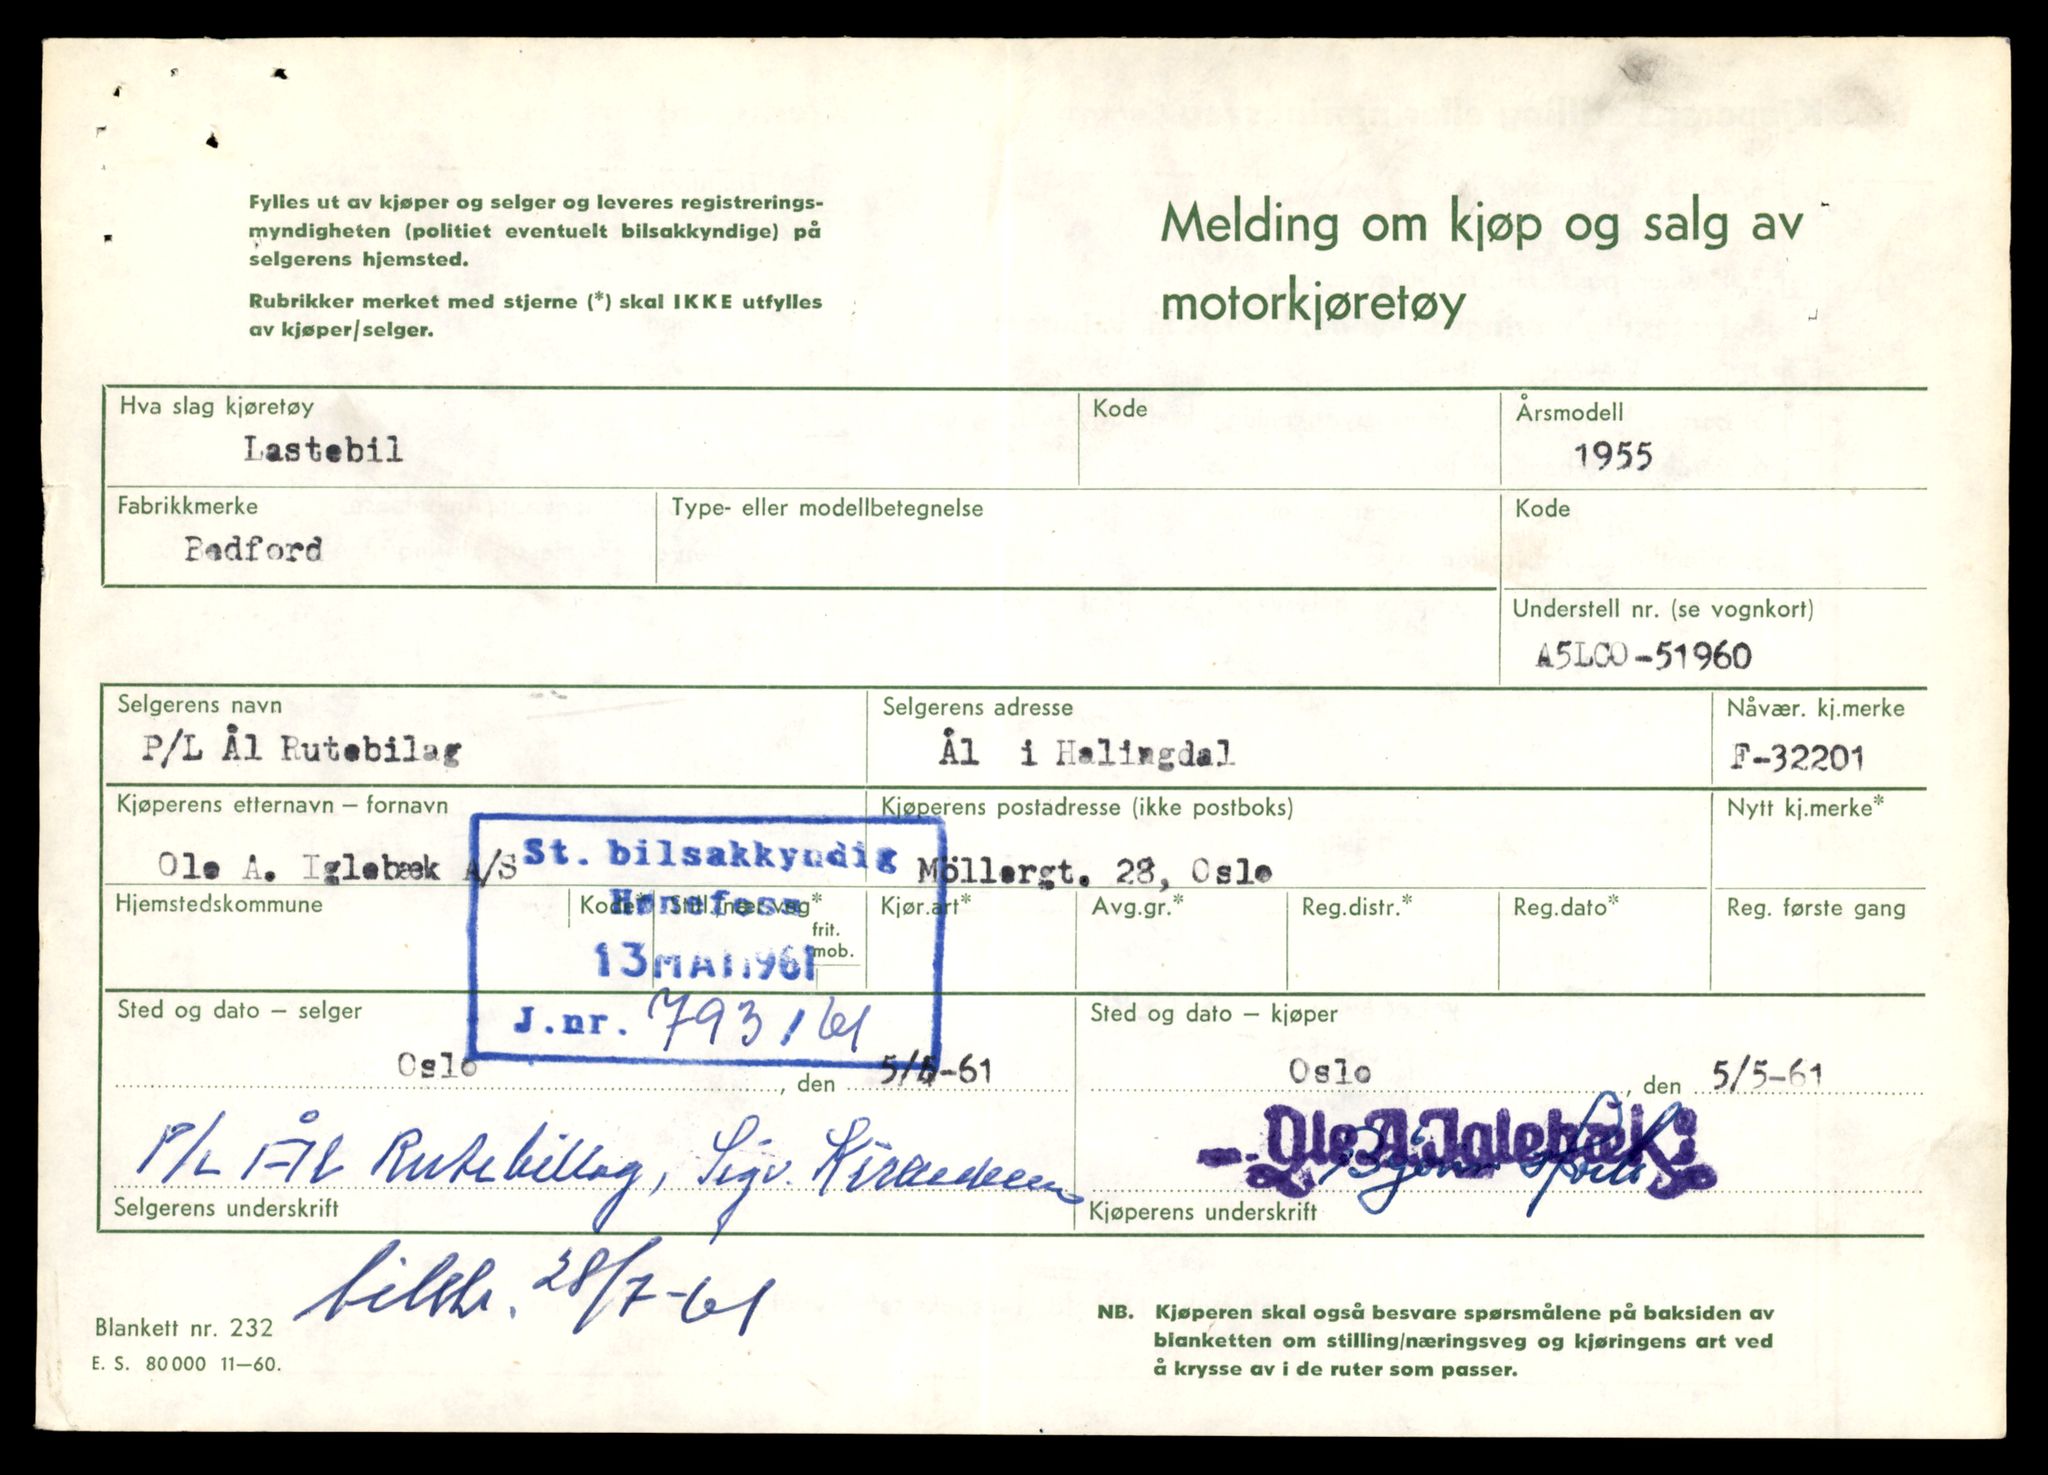 Fylles ut av kjøper og selger og leveres registrerings-
myndigheten (politiet eventuelt bilsakkyndige) på
selgerens hjemsted.
Rubrikker merket med stjerne (*) skal IKKE utfylles
av kjøper/selger.
Melding om kjøp og salg av
motorkjøretøy
Hva slag kjøretøy
Lastebil
Kode
Årsmodell
1955
Fabrikkmerke
Bedford
Type- eller modellbetegnelse
Kode
Understell nr. (se vognkort)
A5LCO-51960
Selgerens navn
P/L Ål Rutebilag
Selgerens adresse
Ål i Halingdal
Nåvær. kj.merke
F-32201
Kjøperens etternavn – fornavn
Ole A. Iglebæk A/S
Kjøperens postadresse (ikke postboks)
Möllergt. 28, Oslo
Nytt kj.merke*
St. bilsakkyndig
Hønefoss
13 MAI 1961
J.nr. 793/61
Hjemstedskommune
Kode*
Still./nær.veg*
frit.
mob.
Kjør.art*
Avg.gr.*
Reg.distr.*
Reg.dato*
Reg. første gang
Sted og dato – selger
Oslo, den 5/5-61
Sted og dato – kjøper
Oslo, den 5/5-61
P/L Ål Rutebillag, Sigv.
Ole A. Iglebæk
Bjørn
Selgerens underskrift
Kjøperens underskrift
28/7-61
Blankett nr. 232
E. S. 80000 11–60.
NB. Kjøperen skal også besvare spørsmålene på baksiden av
blanketten om stilling/næringsveg og kjøringens art ved
å krysse av i de ruter som passer.